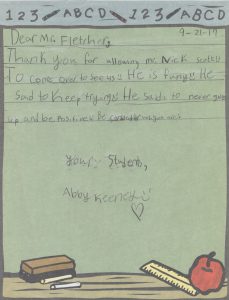 123 ABCD 123 ABCD
9-21-17
Dear Ms. Fletcher,
Thank you for allowing mr. Nick scott
To come over to see us! He is funny! He
said to Keep trying! He said to never give
up and be Positive!
Your Student,
Abby Keeney